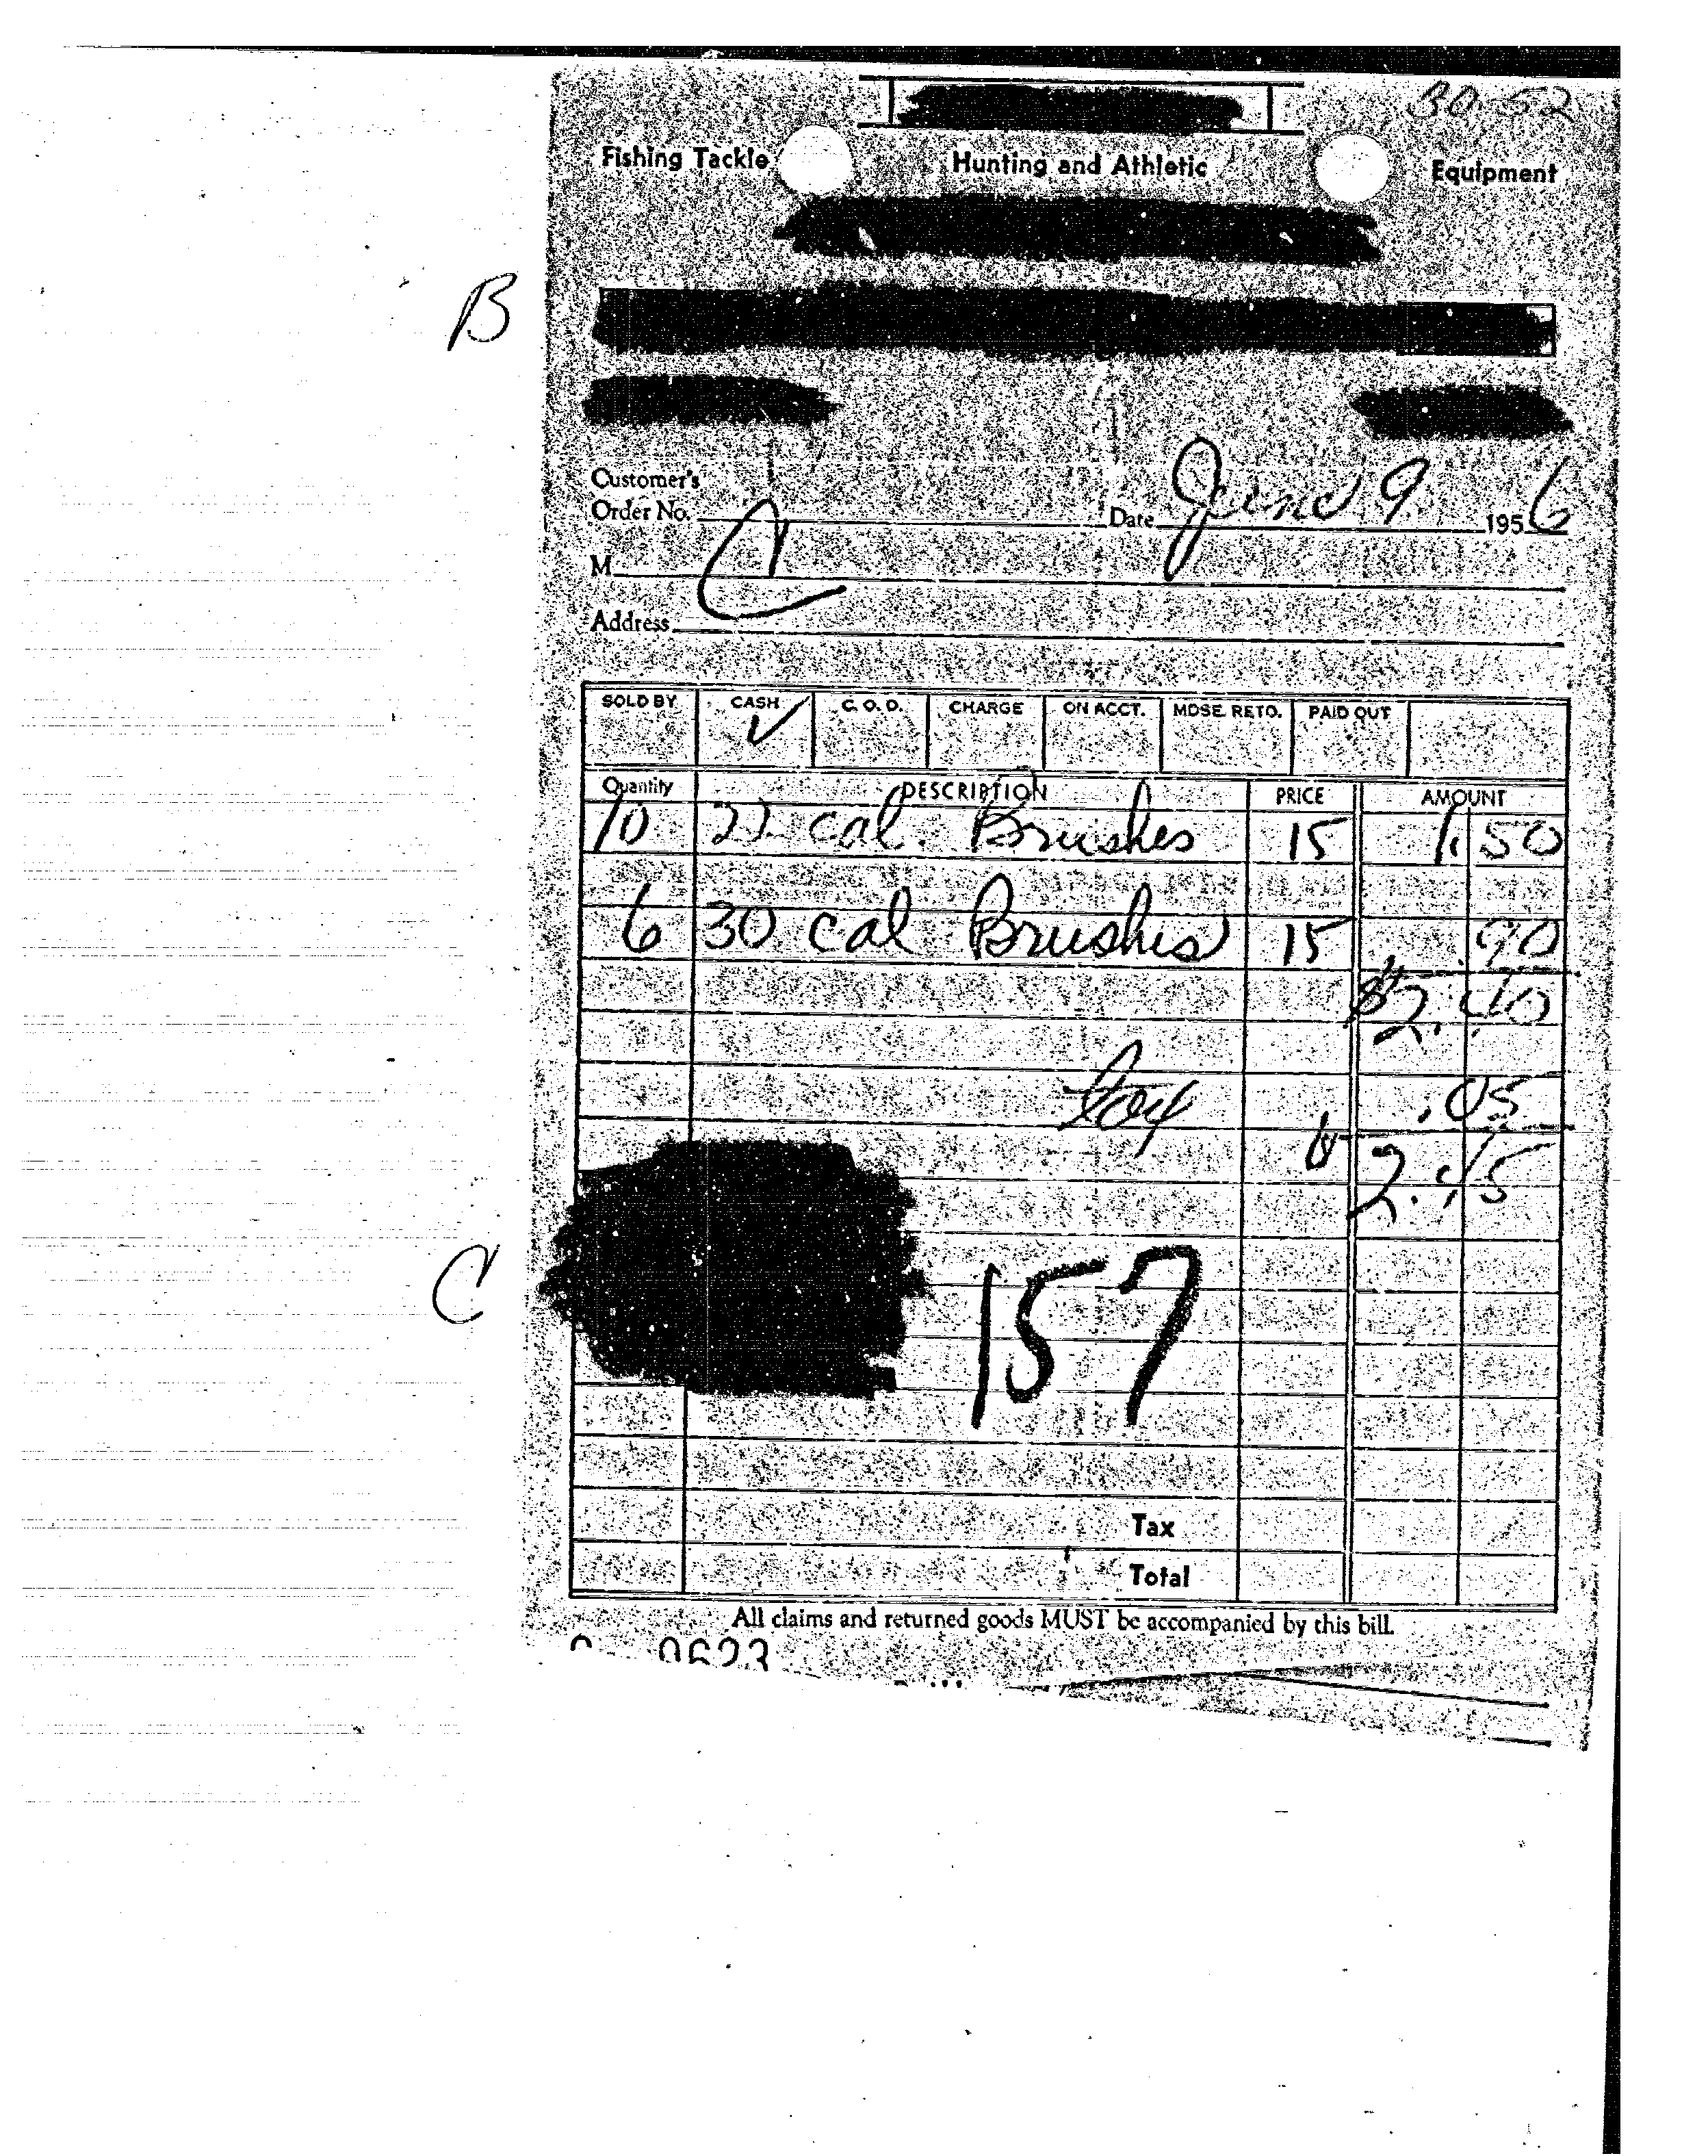 30-52
Fishing Tackle Hunting and Athletic Equipment
B
Customer's
Order No. Date June 9 1956
M C
Address
SOLD BY CASH ✓ C. O. D. CHARGE ON ACCT. MDSE. RETD. PAID OUT
Quantity DESCRIPTION PRICE AMOUNT
10 22 cal. Brushes 15 1.50
6 30 cal Brushes 15 .90
$2.40
Tax .05
2.45
C
157
Tax
Total
All claims and returned goods MUST be accompanied by this bill.